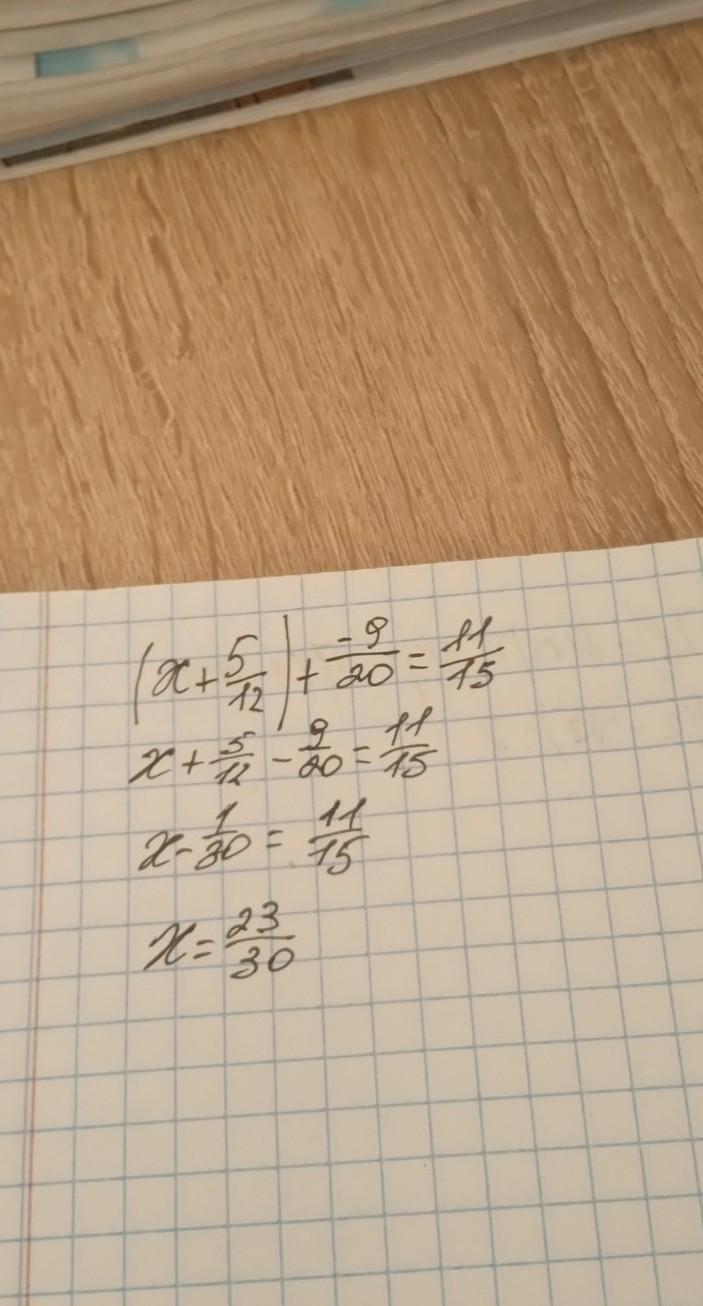 (x + 5/12) + -9/20 = 11/15
x + 5/12 - 9/20 = 11/15
x - 1/30 = 11/15
x = 23/30